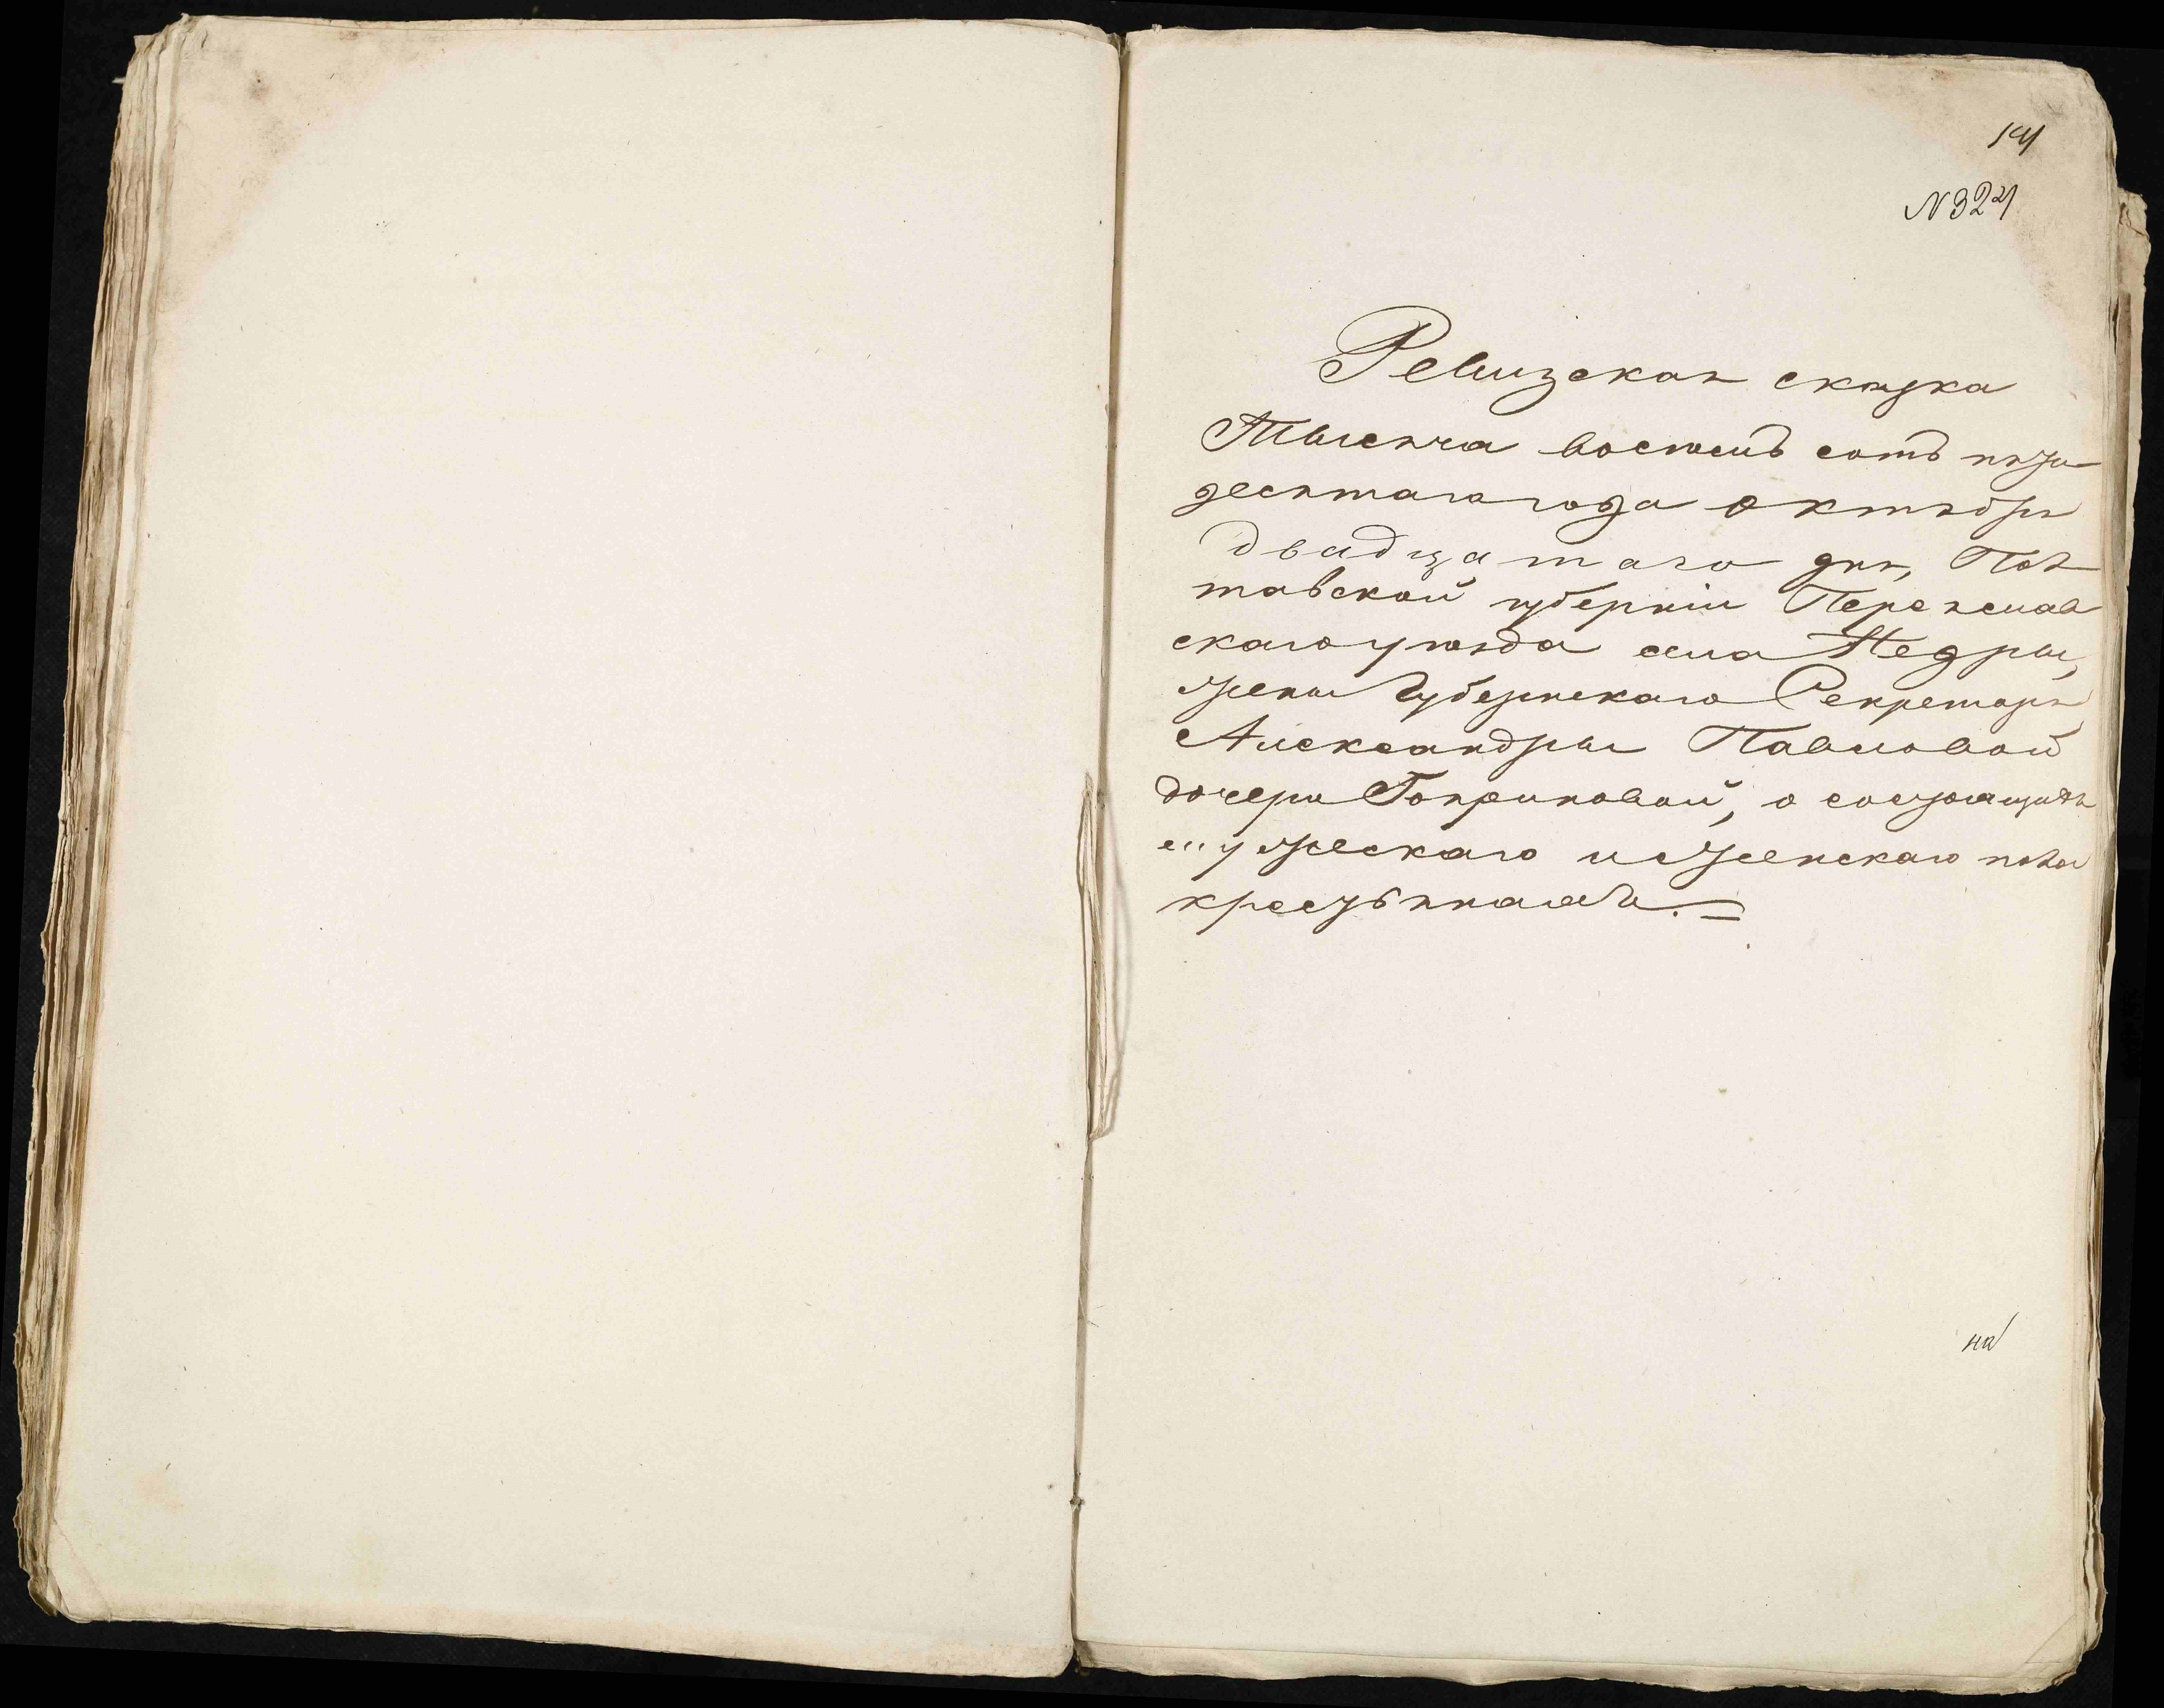 № 324
Ревизская сказка
Тысяча восемь сотъ пяти
десятаго года октября
двадцатаго дня, Пол
тавской губерніи Переяслав
скаго уѣзда села Недры,
жены Губернскаго Секретаря
Александры Павловой
дочери, о состоящихъ
мужескаго и женскаго пола
крестьянахъ.=